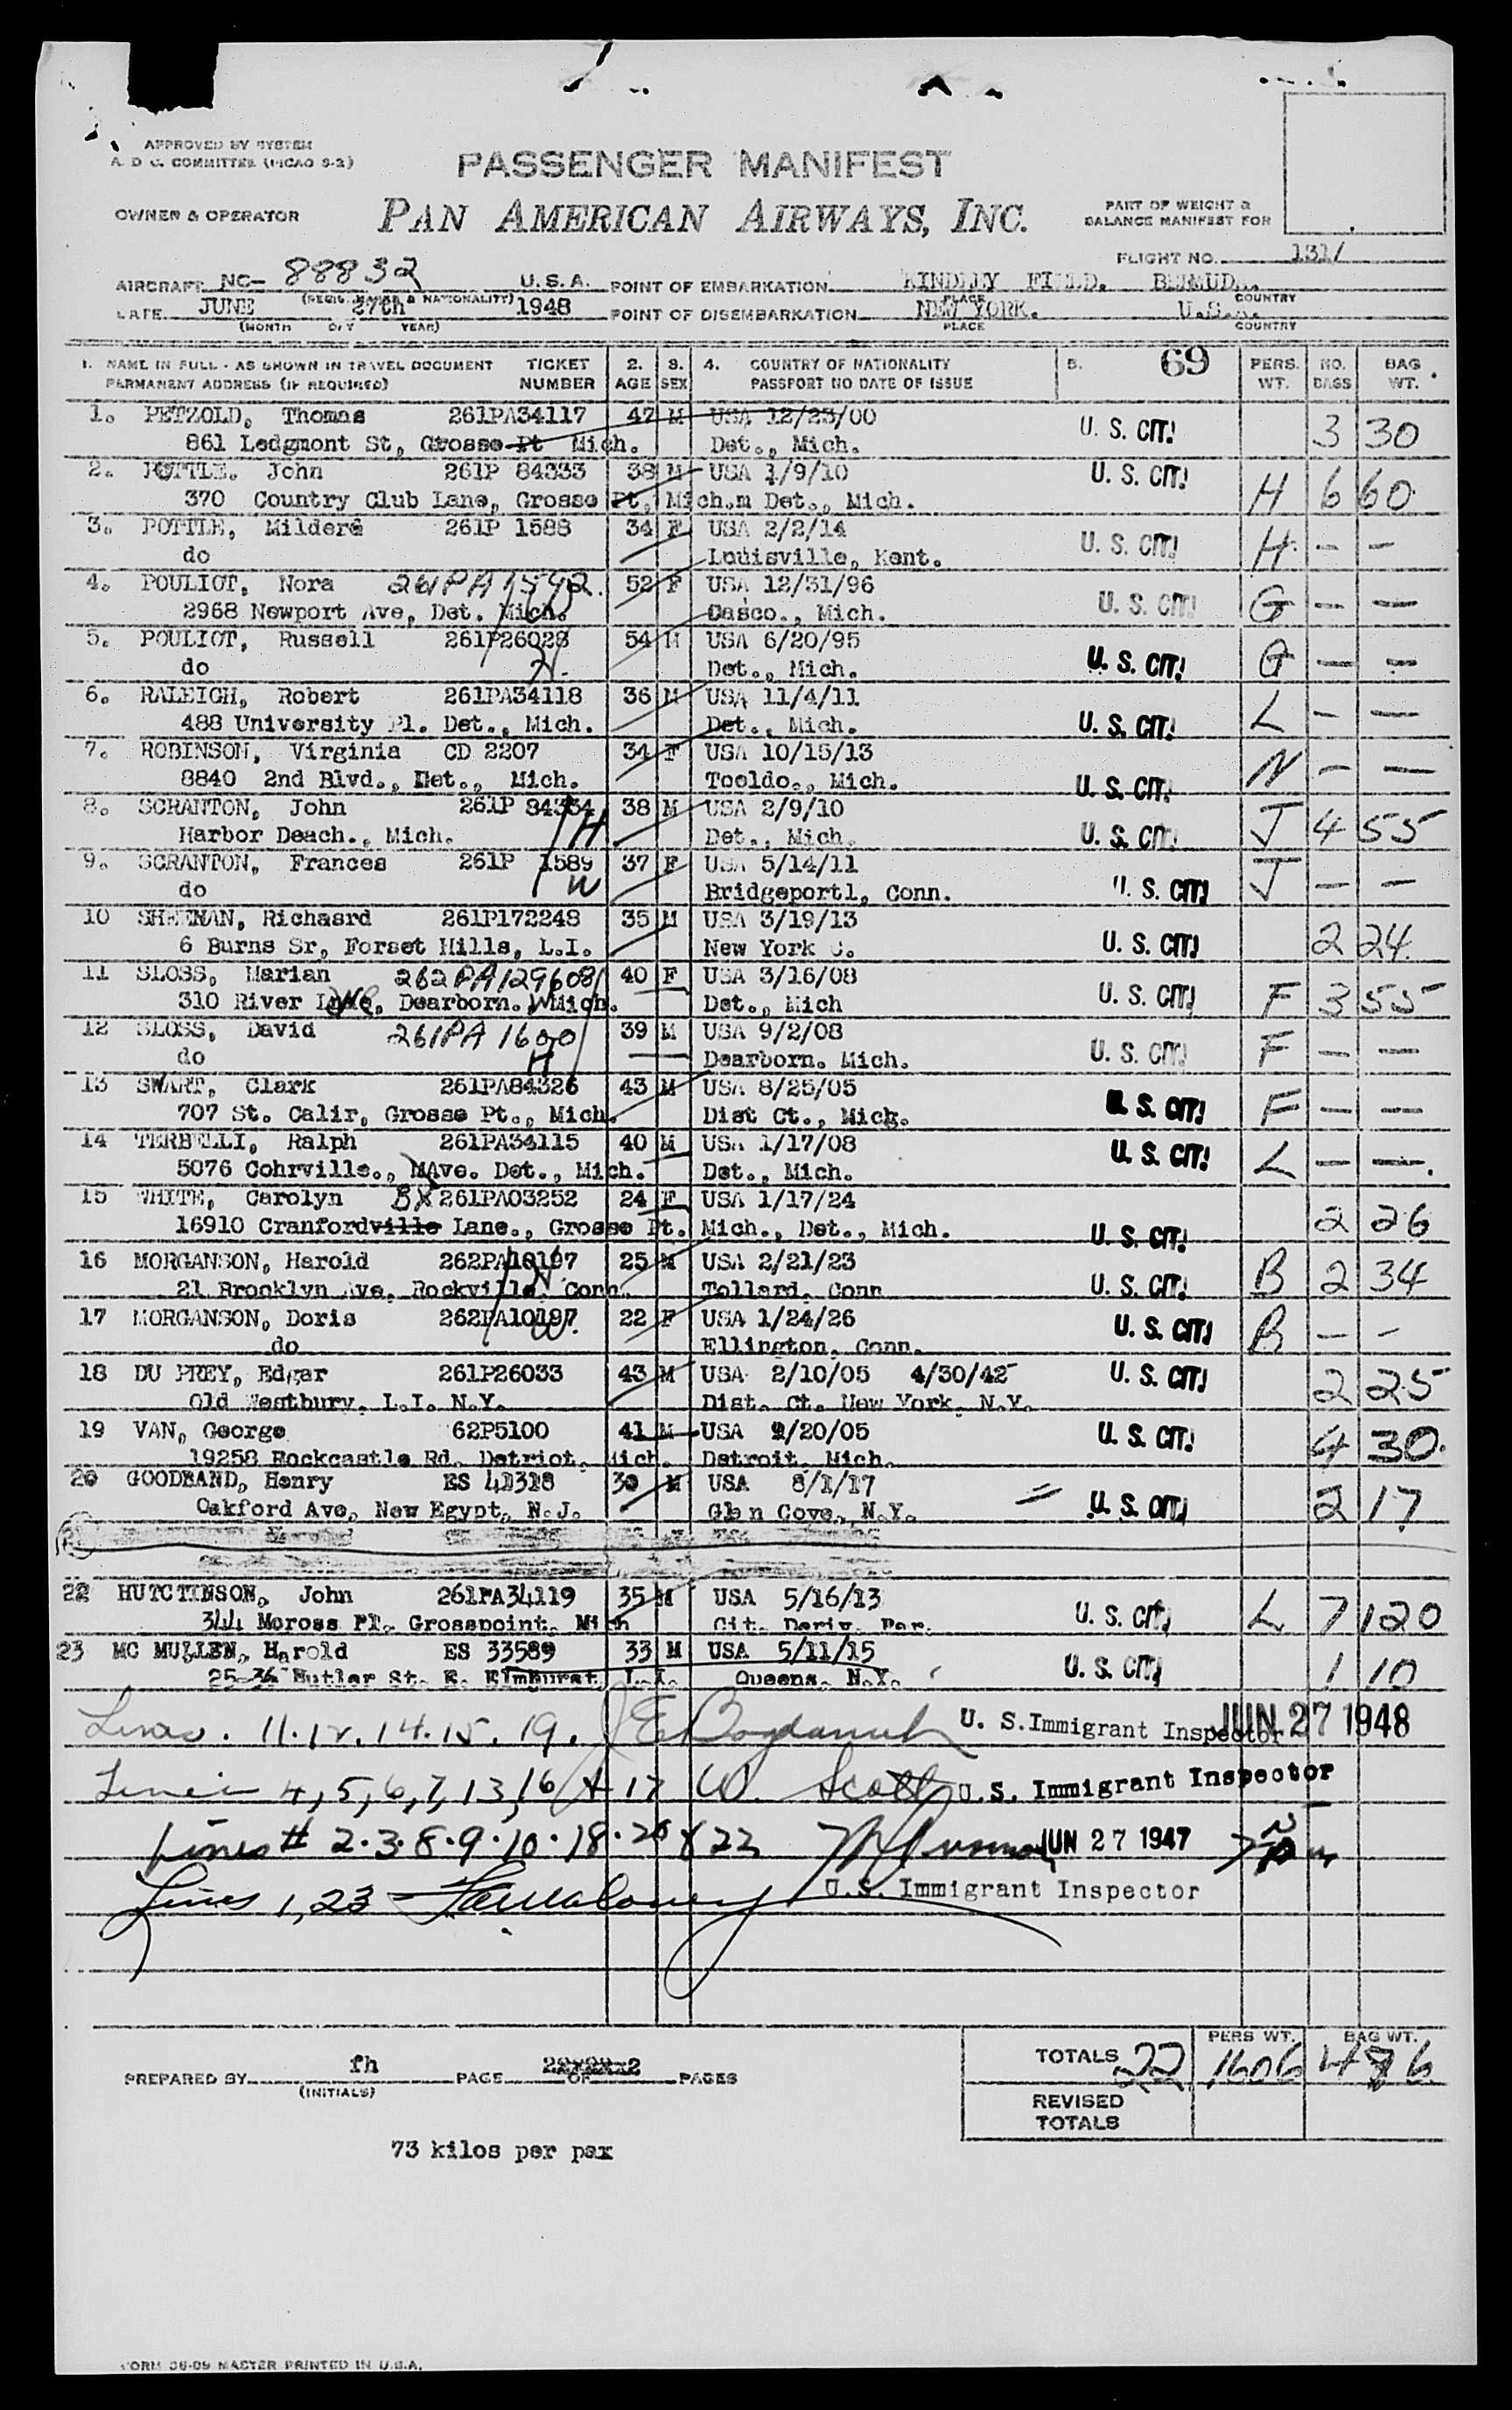 APPROVED BY SYSTEM
A. D C. COMMITTEE (ICAO 9-2)
PASSENGER MANIFEST
OWNER & OPERATOR
PAN AMERICAN AIRWAYS, INC.
PART OF WEIGHT &
BALANCE MANIFEST FOR
FLIGHT NO. 131/
AIRCRAFT NC- 88832 U.S.A. POINT OF EMBARKATION KINDLEY FIELD. BERMUDA.
(REGIS. MARKS & NATIONALITY) PLACE COUNTRY
DATE JUNE 27th 1948 POINT OF DISEMBARKATION NEW YORK. U.S.A.
(MONTH DAY YEAR) PLACE COUNTRY
1. NAME IN FULL - AS SHOWN IN TRAVEL DOCUMENT TICKET 2. 3. 4. COUNTRY OF NATIONALITY 5. 69 PERS. NO. BAG
PERMANENT ADDRESS (IF REQUIRED) NUMBER AGE SEX PASSPORT NO DATE OF ISSUE WT. BAGS WT.
1. PETZOLD, Thomas 261PA34117 47 M USA 12/23/00 U. S. CIT!
861 Ledgmont St, Grosse Pt Mich. Det., Mich. 3 30
2. POTTLE. John 261P 84333 38 M USA 1/9/10 U. S. CIT!
370 Country Club Lane, Grosse Pt, Mich.m Det., Mich. H 6 60
3. POTTLE, Milderé 261P 1588 34 F USA 2/2/14
do Louisville, Kent. U. S. CIT! H - -
4. POULIOT, Nora 261PA1592. 52 F USA 12/31/96
2968 Newport Ave, Det. Mich. W Casco., Mich. U. S. CIT! G - -
5. POULIOT, Russell 261P26028 54 M USA 6/20/95
do H. Det., Mich. U. S. CIT! G - -
6. RALEIGH, Robert 261PA34118 36 M USA 11/4/11
488 University Pl. Det., Mich. Det., Mich. U. S. CIT! L - -
7. ROBINSON, Virginia CD 2207 34 F USA 10/15/13
8840 2nd Blvd., Det., Mich. Tooldo., Mich. U. S. CIT! N - -
8. SCRANTON, John 261P 84334 38 M USA 2/9/10
Harbor Deach., Mich. H Det., Mich. U. S. CIT! J 4 55
9. SCRANTON, Frances 261P 1589 37 F USA 5/14/11
do W Bridgeportl, Conn. U. S. CIT! J - -
10 Richasrd 261P172248 35 M USA 3/19/13
6 Burns Sr, Forset Hills, L.I. New York C. U. S. CIT! 2 24
11 SLOSS, Marian 262PA129608 40 F USA 3/16/08
310 River Dearborn. W Mich. Det., Mich U. S. CIT! F 3 55
12 SLOSS, David 261PA 1600 39 M USA 9/2/08
do H Dearborn. Mich. U. S. CIT! F - -
13 SWART, Clark 261PA84326 43 M USA 8/25/05
707 St. Calir, Grosse Pt., Mich. Dist Ct., Mich. U. S. CIT! F - -
14 TERBELLI, Ralph 261PA34115 40 M USA 1/17/08
5076 Cohrville., Ave. Det., Mich. Det., Mich. U. S. CIT! L - -
15 WHITE, Carolyn BX 261PA03252 24 F USA 1/17/24
16910 Cranfordville Lane., Grosse Pt. Mich., Det., Mich. U. S. CIT! 2 26
16 MORGANSON, Harold 262PA10197 25 M USA 2/21/23
21 Brooklyn Ave, Rockville. Conn. H. Tollard, Conn U. S. CIT! B 2 34
17 MORGANSON, Doris 262PA10197 22 F USA 1/24/26
do W. Ellington, Conn. U. S. CIT! B - -
18 DU PREY, Edgar 261P26033 43 M USA 2/10/05 4/30/42 U. S. CIT!
Old Westbury, L.I. N.Y. Dist. Ct. New York, N.Y. 2 25
19 VAN, George 62P5100 41 M USA 9/20/05 U. S. CIT!
19258 Rockcastle Rd. Detriot, Mich. Detroit, Mich. 4 30
20 GOODBAND, Henry ES 41318 30 M USA 8/1/17
Oakford Ave, New Egypt, N.J. Glen Cove., N.Y. U. S. CIT! 2 17
22 HUTCTINSON, John 261PA34119 35 M USA 5/16/13
344 Moross Pl. Grosspoint, Mich Cit. Deriv. Par. U. S. CIT! L 7 120
23 MC MULLEN, Harold ES 33589 33 M USA 5/11/15
25-36 Butler St. E. Elmhurst L.I. Queens, N.Y. U. S. CIT! 1 10
Lines. 11. 12. 14. 15. 19. U. S. Immigrant Inspector JUN 27 1948
Lines 4, 5, 6, 7, 13, 16 & 17 W. Scott U. S. Immigrant Inspector
Lines # 2.3.8.9.10.18.20 & 22 JUN 27 1947
Lines 1, 23 U.S. Immigrant Inspector
TOTALS 22 PERS WT. 1606 BAG WT. 486
PREPARED BY fh PAGE OF 2 PAGES
(INITIALS)
REVISED
TOTALS
73 kilos per pax
FORM 06-09 MASTER PRINTED IN U.S.A.